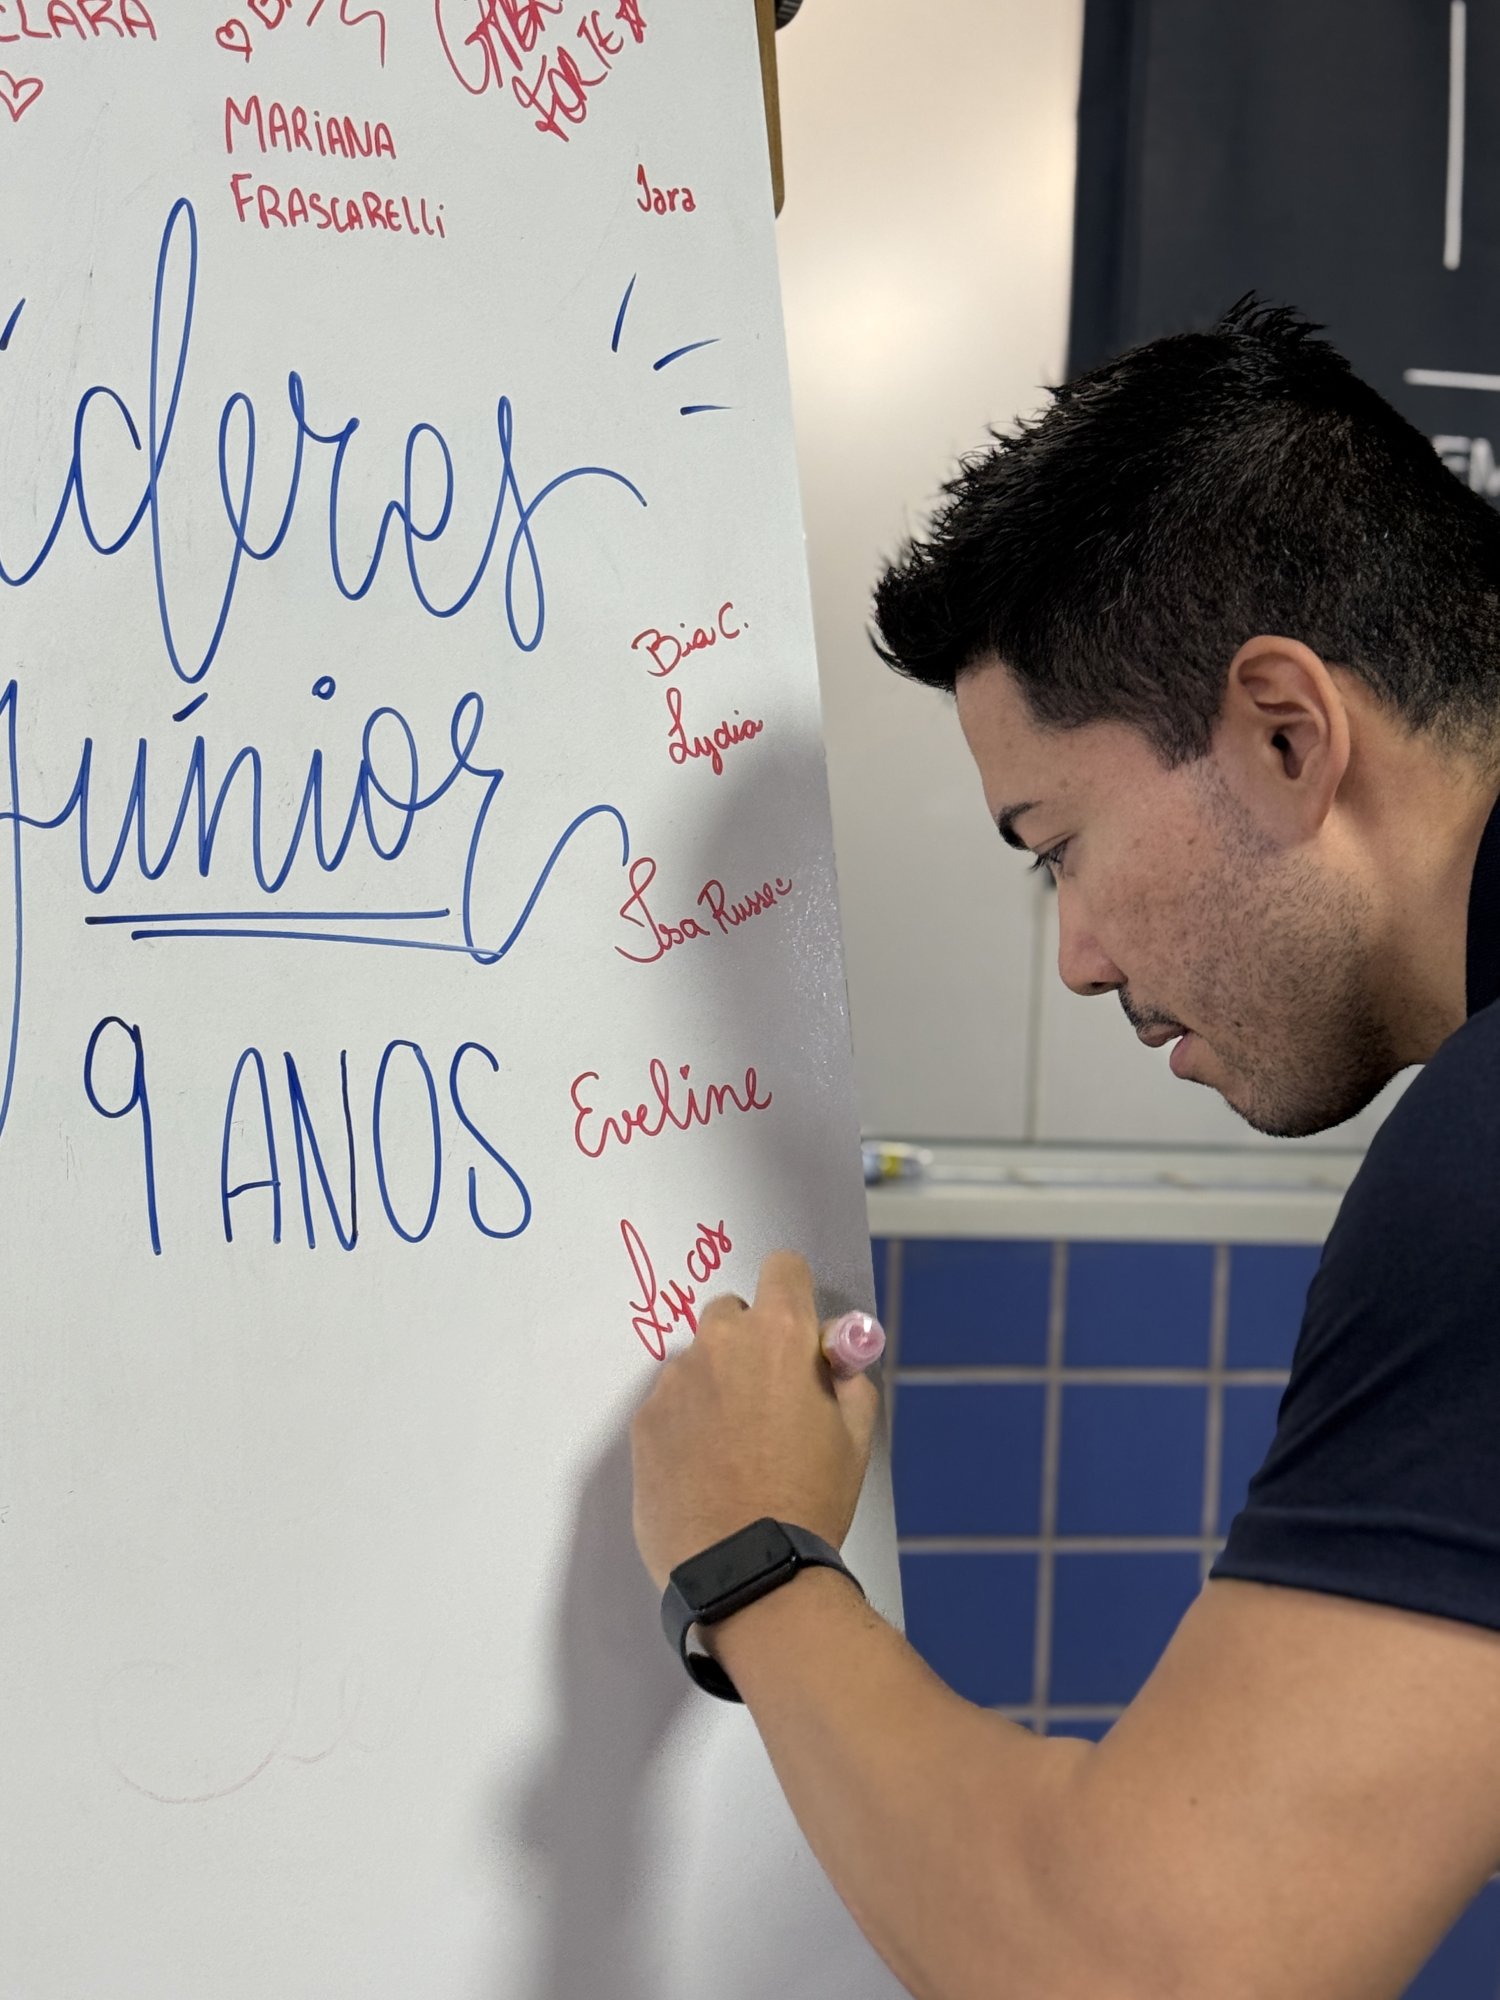 CLARA
MARIANA
FRASCARELLi
FORTE
Iara
Júnior
9 ANOS
Bia C.
Lydia
Isa Russe
Eveline
Lucas